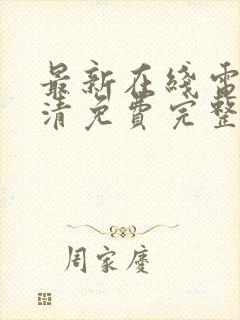 最新在綫電
清免費完整
周家慶